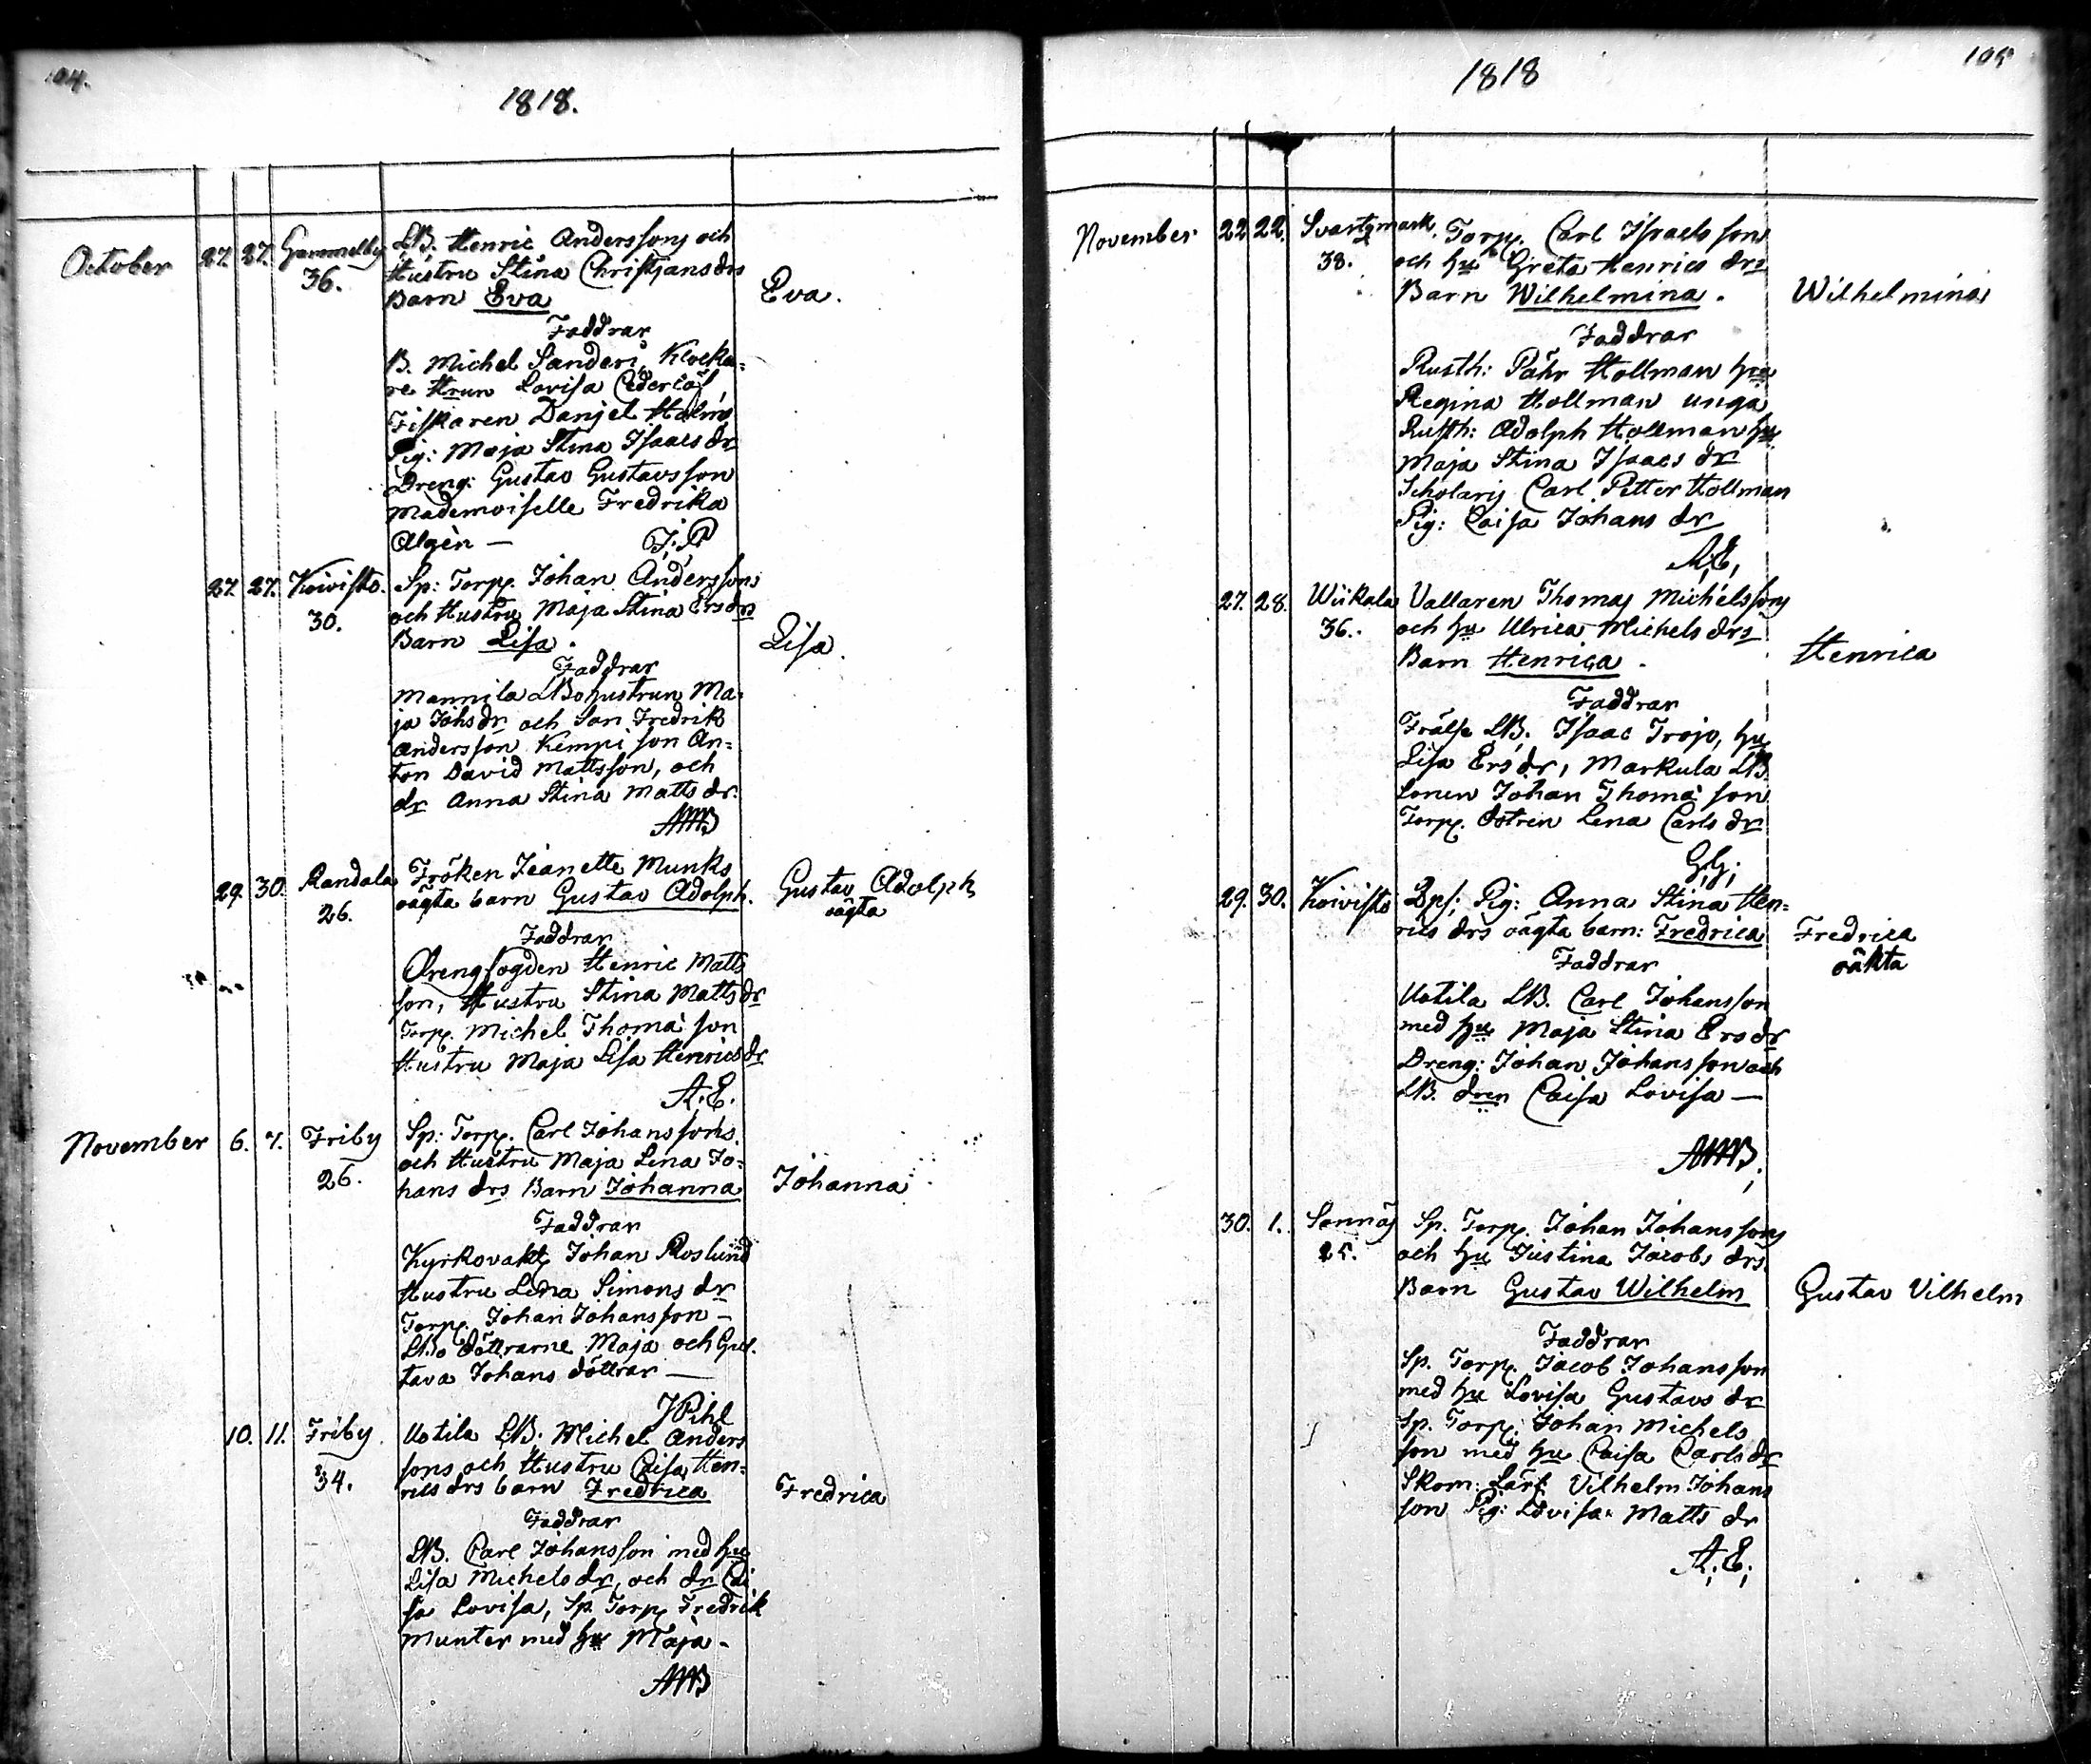 104.
1818.
October 27. 27. Gammelby LB. Henric Anderssons och
36. Hustru Stina Christjansdrs
Barn Eva
Eva.
Faddrar
B. Michel Sanderi, Klocka=
re Hrun Lovisa Cederlöf,
Fiskaren Danjel Holms
Pig: Maja Stina Isaacs dr
Dreng: Gustav Gustavsson
Mademoiselle Fredrika
Algèn —
J. P
27. 27. Koivisto. Sp: Torp. Johan Anderssons
30. och Hustru Maja Stina Ersdrs
Barn Lisa.
Lisa.
Faddrar
Mannila LBohustrun Ma=
ja Johsdr och Son Fredrik
Andersson Kempi son An=
ton David Mattsson, och
dr Anna Stina Matts dr.
AMB
29. 30. Randala Fröken Jeanette Munks
26. oägta barn Gustav Adolph.
Gustav Adolph
oägta
Faddrar
Drengfogden Henric Matts
son, Hustru Stina Matts dr
Torp. Michel Thomæ son
Hustru Maja Lisa Henrics dr
A. E.
November 6. 7. Friby Sp: Torp. Carl Johanssons
26. och Hustru Maja Lena Jo=
hans drs Barn Johanna
Johanna
Faddrar
Kyrkovakt Johan Roslund
Hustru Lena Simons dr
Torp. Johan Johansson —
LBo döttrarne Maja och Gus-
tava Johans döttrar —
J Pihl
10. 11. Friby. Uotila LB. Michel Anders
34. sons och Hustru Caisa Hen=
rics drs barn Fredrica
Fredrica
Faddrar
LB. Carl Johansson med hu
Lisa Michels dr, och dr Cai
sa Lovisa, Sp. Torp. Fredrik
Munter med hu Maja -
AMB
105
1818
November 22 22. Svartsmark. Torp. Carl Israelssons
38. och hu Greta Henrics drs
Barn Wilhelmina.
Wilhelmina
Faddrar
Rusth: Pähr Hollman hu
Regina Hollman unga
Rusth: Adolph Hollman hu
Maja Stina Isaacs dr
Scholaris Carl Petter Hollman
Pig: Caisa Johans dr
A. E,
27. 28. Wiikala Vallaren Thomas Michelssons
36. och hu Ulrica Michels drs
Barn Henrica.
Henrica
Faddrar
Frälse LB. Isaac Trojo, hu
Lisa Ers dr, Markula LB.
Sonen Johan Thomæ son
Torp. dotren Lena Carls dr
G. G;
29. 30. Koivisto Bps; Pig: Anna Stina Hen=
rics drs oägta barn: Fredrica
Fredrica
oäkta
Faddrar
Uotila LB. Carl Johansson
med hu Maja Stina Ers dr
Dreng: Johan Johansson och
LB. dren Caisa Lovisa —
AMB,
30. 1. Sonnäs Sp. Torp. Johan Johanssons
25. och hu Justina Jacobs drs
Barn Gustav Wilhelm
Gustav Vilhelm
Faddrar
Sp. Torp. Jacob Johansson
med hu Lovisa Gustavs dr
Sp. Torp. Johan Michels
son med hu Caisa Carls dr
Skom: Lärl Vilhelm Johans
son Pig: Lovisa Matts dr
A. E;